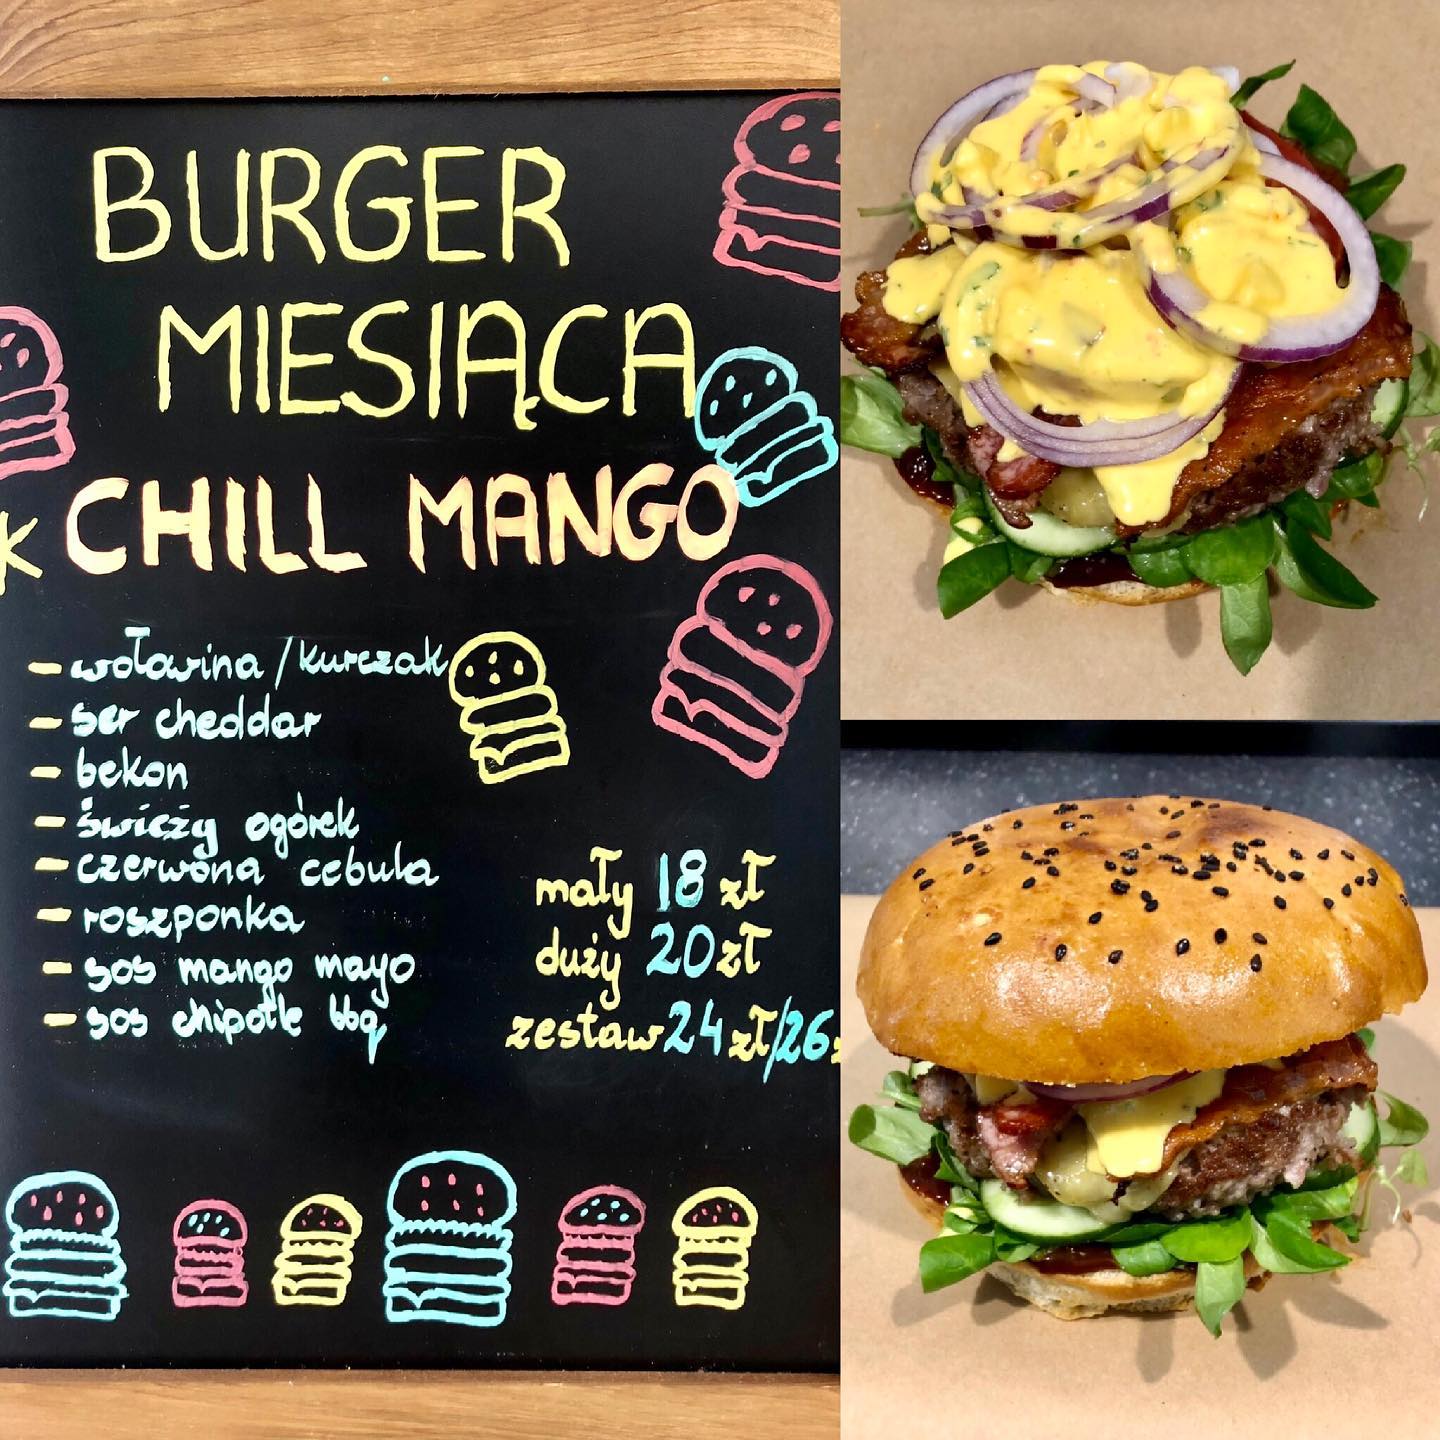 BURGER
MIESIĄCA
K
CHILL MANGO
- wołowina / kurczak
- ser cheddar
- bekon
- świeży ogórek
- czerwona cebula
- roszponka
- sos mango mayo
- sos chipotle bbq
mały 18 zł
duży 20 zł
zestaw 24 zł/26